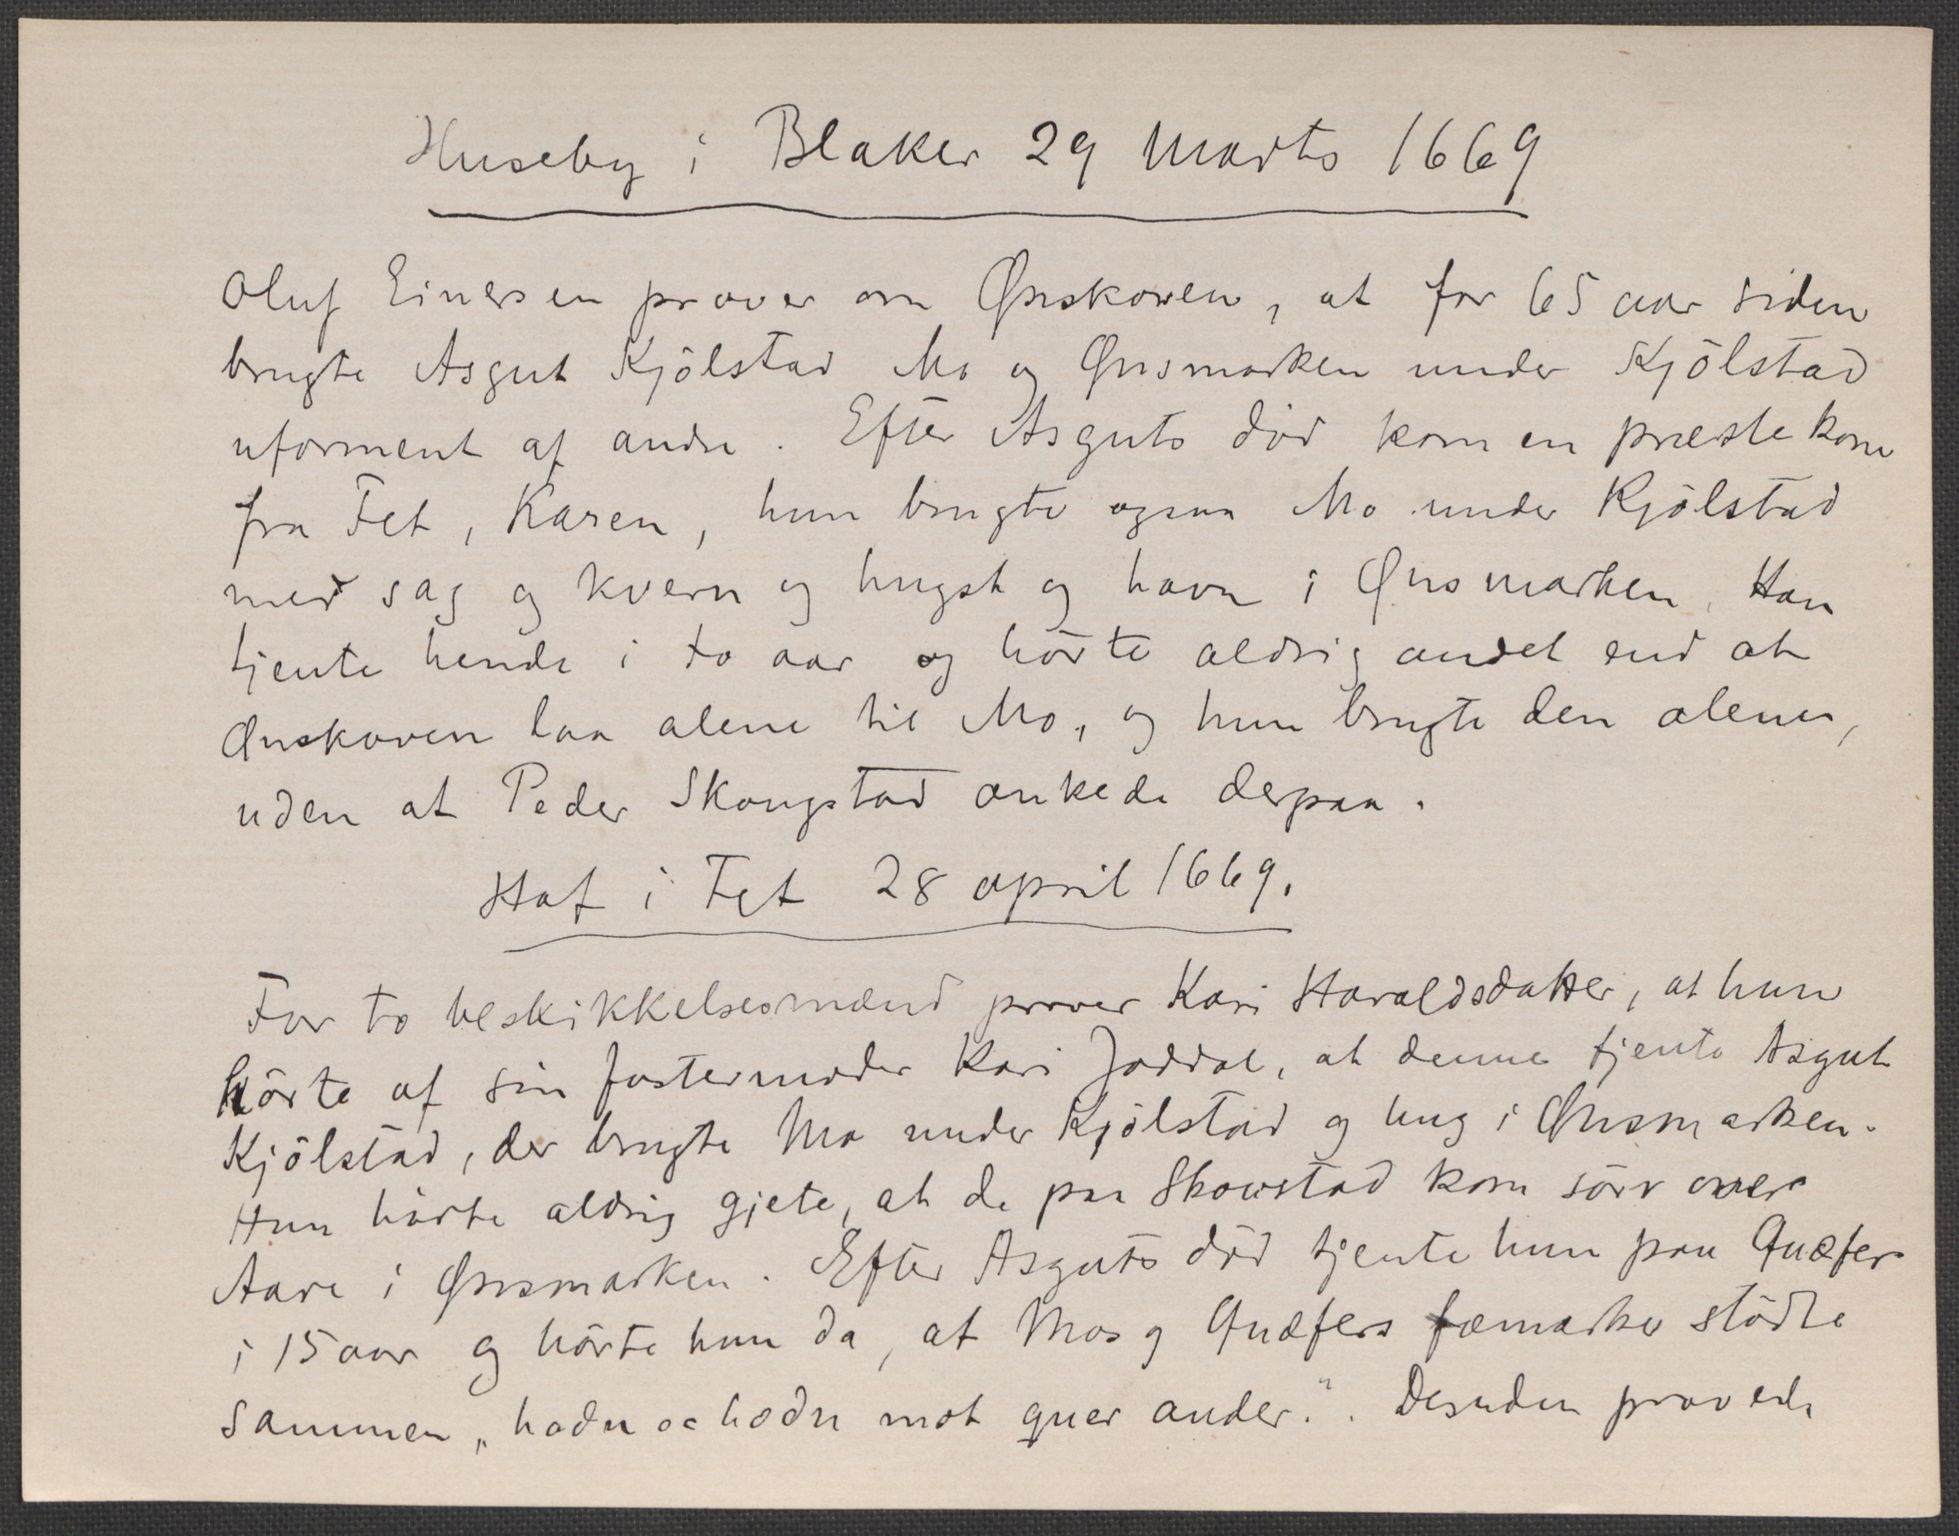 Huseby i Blaker 29 Marts 1669
Oluf Einersen prover om Ønskoven, at for 65 aar siden
brugte Asgut Kjölstad Mo og Ønsmarken under Kjölstad
uforment af andre. Efter Asguts död kom en præstekone
fra Fet, Karen, hun brugte ogsaa Mo under Kjölstad
med sag og kvern og hugst og havn i Ønsmarken. Han
tjente hende i to aar og hörte aldrig andet end at
Ønskoven laa alene til Mo, og hun brugte den alene,
uden at Peder Skougstad ankede derpaa.
Hof i Fet 28 april 1669.
For to beskikkelsesmænd prover Kari Haraldsdatter, at hun
hörte af sin fostermoder Kari Joddal, at denne tjente Asgut
Kjölstad, der brugte Mo under Kjölstad og hug i Ønsmarken.
Hun hörte aldrig gjete, at de paa Skovstad kom sörr over
Aare i Ønsmarken. Efter Asguts död tjente hun paa Quæfer
i 15 aar og hörte hun da, at Mos og Quæfers fæmarker stödte
sammen „hodn oc hodn mot quer ander.“ Desuden provede